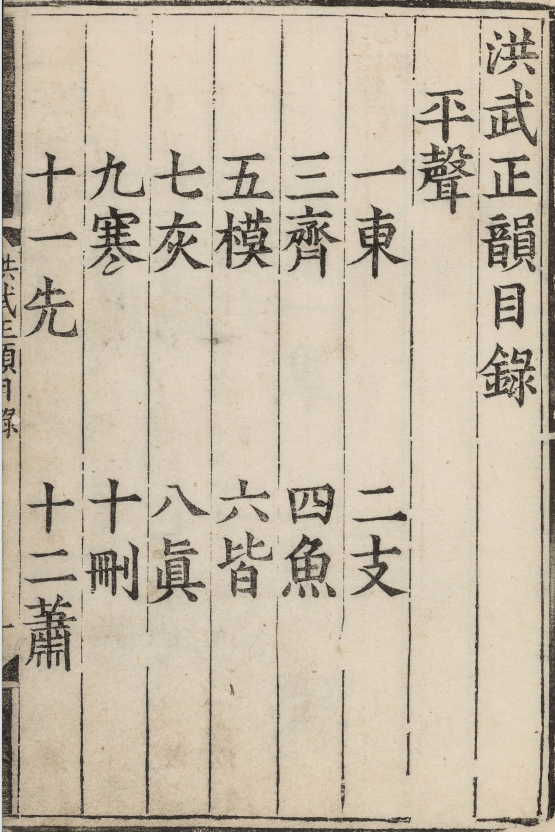 洪武正韻目錄
平聲
一東 二支
三齊 四魚
五模 六皆
七灰 八眞
九寒 十刪
十一先 十二蕭
洪武正韻目錄